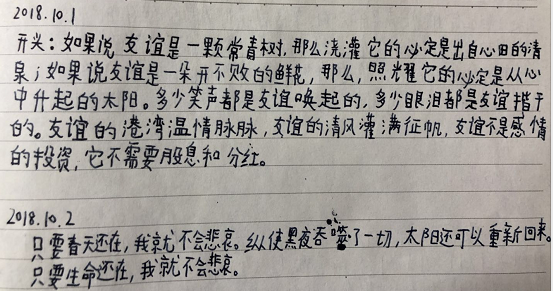 2018.10.1
开头：如果说友谊是一颗常青树,那么浇灌它的必定是出自心田的清
泉；如果说友谊是一朵开不败的鲜花，那么，照耀它的必定是从心
中升起的太阳。多少笑声都是友谊唤起的，多少眼泪都是友谊揩干
的。友谊的港湾温情脉脉，友谊的清风灌满征帆，友谊不是感情
的投资，它不需要股息和分红。
2018.10.2
只要春天还在，我就不会悲哀。纵使黑夜吞噬了一切，太阳还可以重新回来。
只要生命还在，我就不会悲哀。